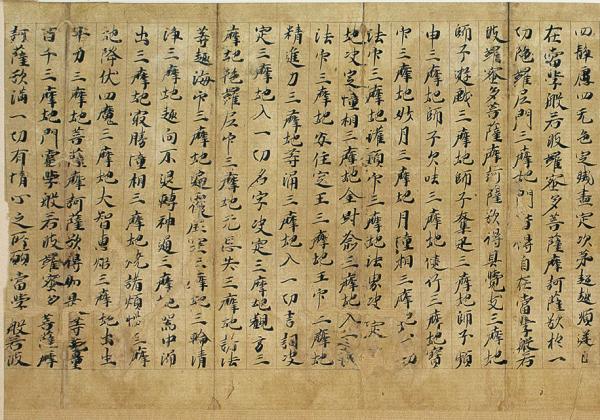 四靜慮四无色定滅盡定次第超越順逆自
在當學般若波羅蜜多菩薩摩訶薩欲於一
切陁羅尼門三摩地門皆得自在當學般若
波羅蜜多菩薩摩訶薩欲得具覺支三摩地
師子遊戲三摩地師子奮迅三摩地師子頻
申三摩地師子欠呿三摩地健行三摩地寶
印三摩地妙月三摩地月幢相三摩地一切
法印三摩地灌頂印三摩地法界決定
地決定幢相三摩地金剛喻三摩地入一切
法印三摩地安住定王三摩地王印三摩地
精進力三摩地等涌三摩地入一切言詞決
定三摩地入一切名字決定三摩地觀方三
摩地陁羅尼印三摩地无忘失三摩地諸法
等趣海印三摩地遍覆虛空三摩地三輪清
淨三摩地趣向不退轉神通三摩地器中涌
出三摩地最勝幢相三摩地燒諸煩惱三摩
地降伏四魔三摩地大智惠炬三摩地出生
十力三摩地菩薩摩訶薩欲得如是等无量
百千三摩地門當學般若波羅蜜多菩薩摩
訶薩欲滿一切有情心之所願當學般若波